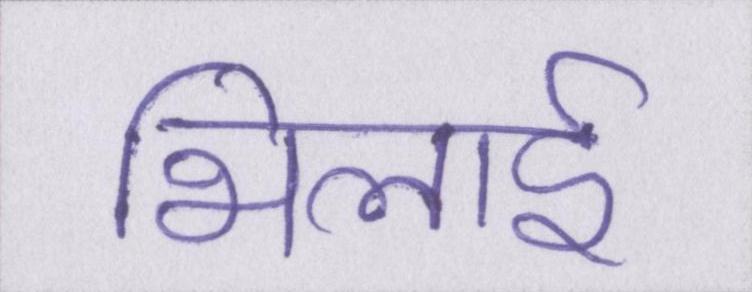 भिलाई